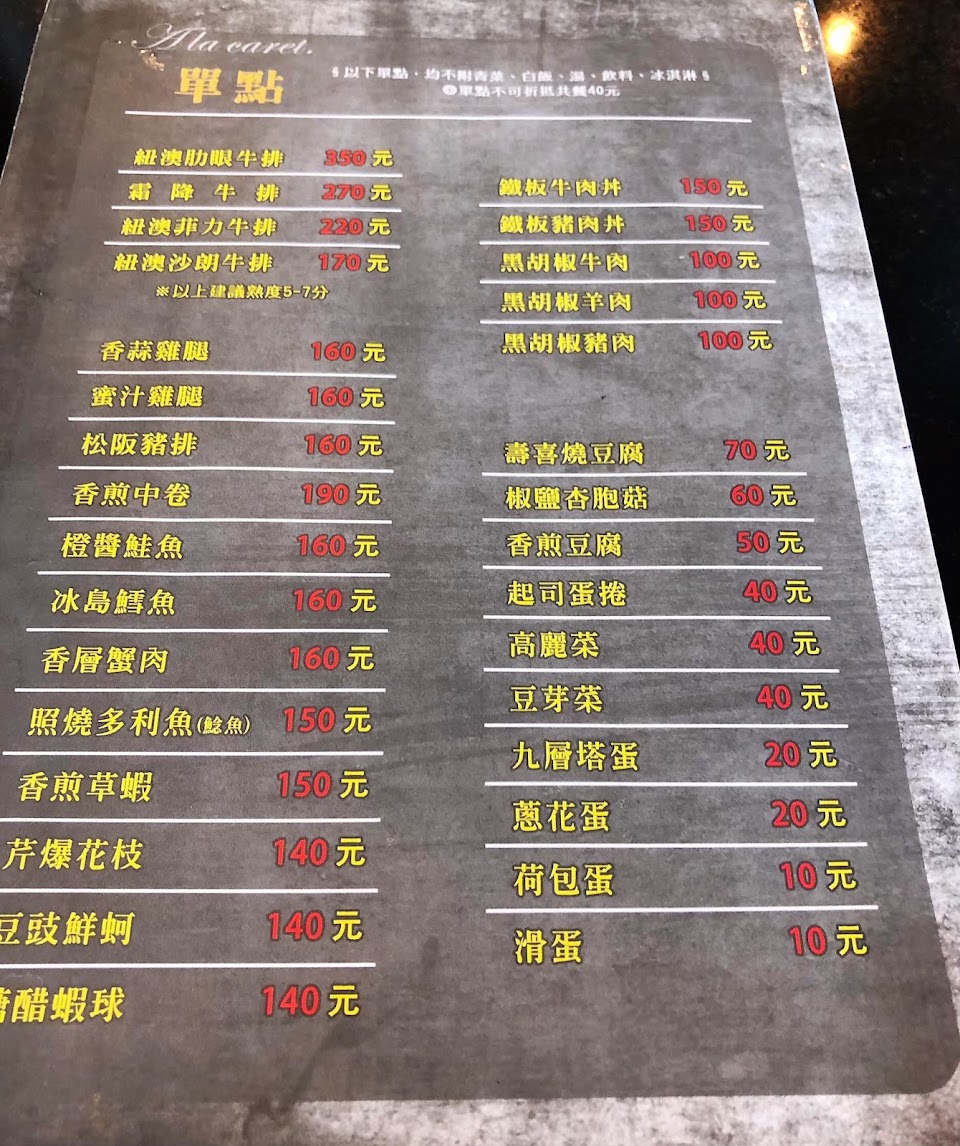 A la caret.
單點
§以下單點，均不附香菜、白飯、湯、飲料、冰淇淋§
單點不可折抵共餐40元
紐澳肋眼牛排 350元
霜降牛排 270元
紐澳菲力牛排 220元
紐澳沙朗牛排 170元
※以上建議熟度5-7分
香蒜雞腿 160元
蜜汁雞腿 160元
松阪豬排 160元
香煎中卷 190元
橙醬鮭魚 160元
冰島鱈魚 160元
香層蟹肉 160元
照燒多利魚(鯰魚) 150元
香煎草蝦 150元
芹爆花枝 140元
豆豉鮮蚵 140元
糖醋蝦球 140元
鐵板牛肉丼 150元
鐵板豬肉丼 150元
黑胡椒牛肉 100元
黑胡椒羊肉 100元
黑胡椒豬肉 100元
壽喜燒豆腐 70元
椒鹽杏胞菇 60元
香煎豆腐 50元
起司蛋捲 40元
高麗菜 40元
豆芽菜 40元
九層塔蛋 20元
蔥花蛋 20元
荷包蛋 10元
滑蛋 10元